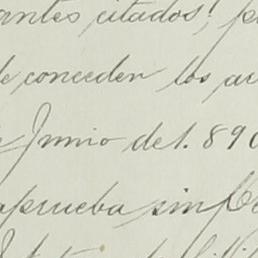 antes citados! p
de conceden los au
e Junio de 1.890
aprueba sin Ce